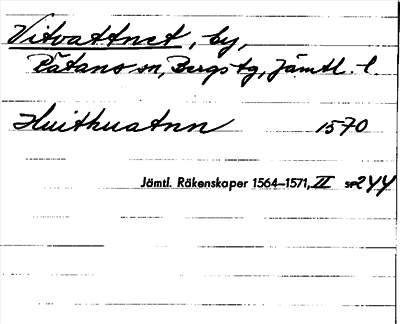 Vitvattnet, by,
Rätans sn, Bergs tg, Jämtl. l
Huithuatnn 1570
Jämtl. Räkenskaper 1564–1571, II s. 244